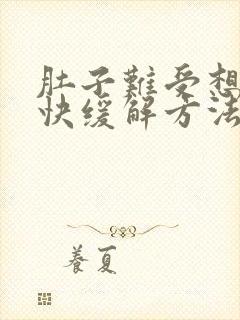 肚子難受想
快缓解方法
養夏